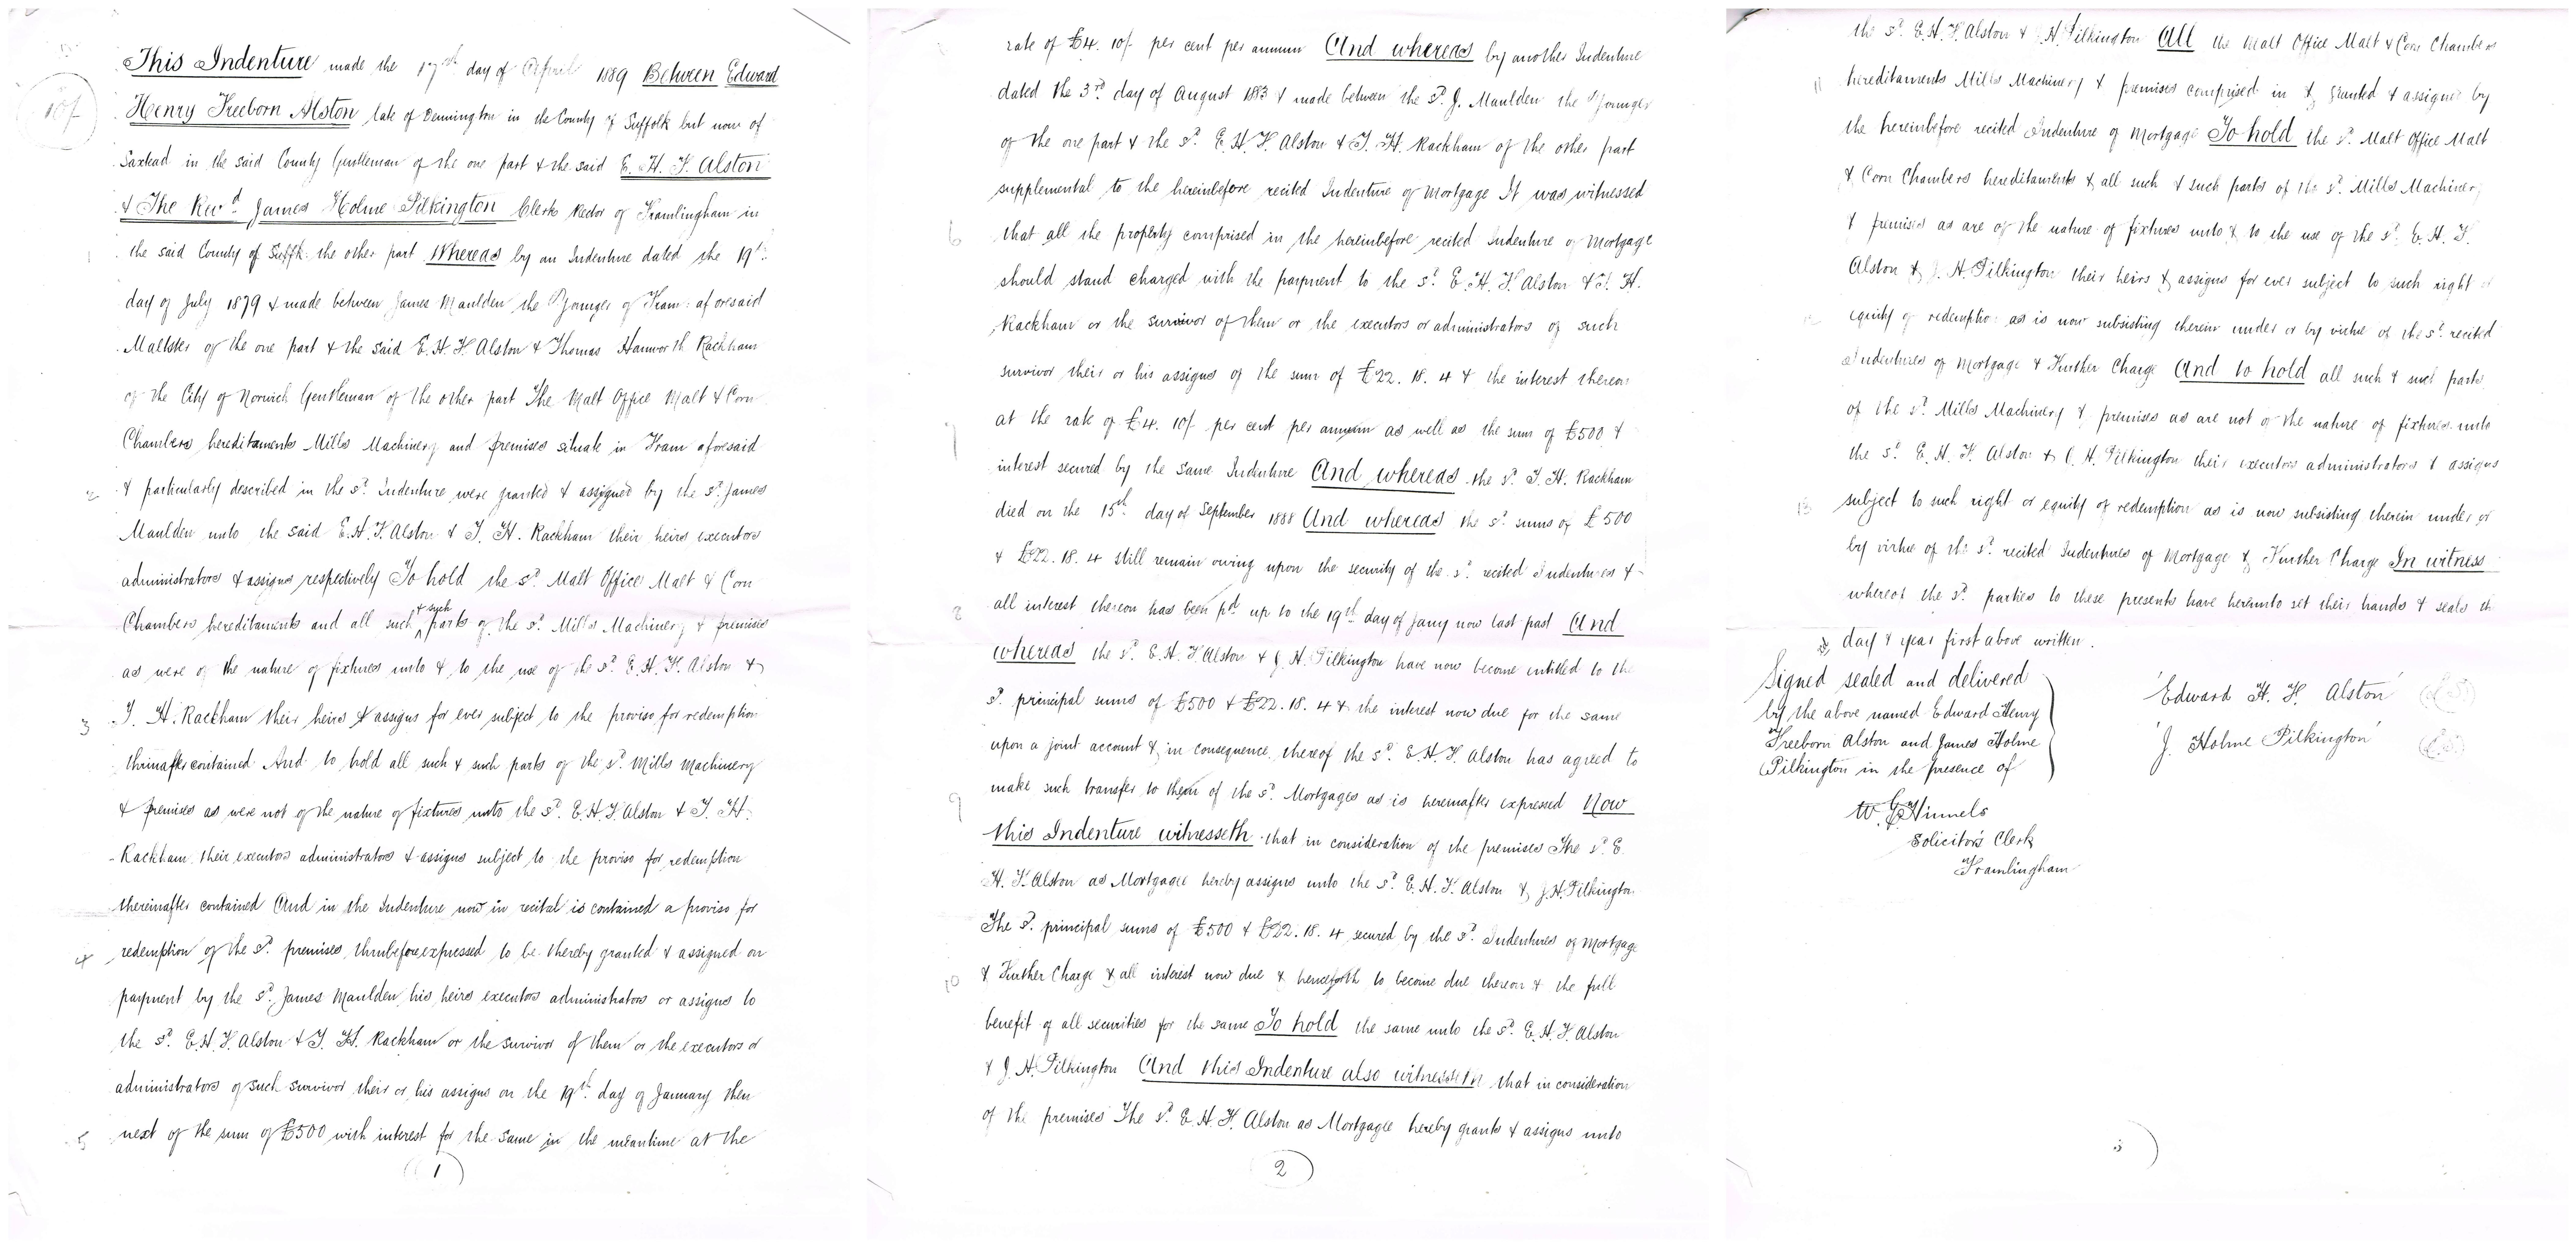 10/-
This Indenture made the 17th day of April 1889 Between Edward
Henry Freeborn Alston late of Dennington in the County of Suffolk but now of
Saxtead in the said County Gentleman of the one part & the said E. H. F. Alston
& The Revd. James Holme Pilkington Clerk Rector of Framlingham in
1 the said County of Suffk. the other part Whereas by an Indenture dated the 19th:
day of July 1879 & made between James Maulden the Younger of Fram: aforesaid
Maltster of the one part & the said E. H. F. Alston & Thomas Hanworth Rackham
of the City of Norwich Gentleman of the other part The Malt Office Malt & Corn
Chambers hereditaments Mills Machinery and premises situate in Fram aforesaid
2 & particularly described in the sd. Indenture were granted & assigned by the sd. James
Maulden unto the said E. H. F. Alston & T. H. Rackham their heirs executors
administrators & assigns respectively To hold the sd. Malt Office Malt & Corn
Chambers hereditaments and all such & such parts of the sd. Mills Machinery & premises
as were of the nature of fixtures unto & to the use of the sd. E. H. F. Alston &
3 T. H. Rackham their heirs & assigns for ever subject to the proviso for redemption
thrinafter contained And to hold all such & such parts of the sd. Mills Machinery
& premises as were not of the nature of fixtures unto the sd. E. H. F. Alston & T. H.
Rackham their executors administrators & assigns subject to the proviso for redemption
thereinafter contained And in the Indenture now in recital is contained a proviso for
4 redemption of the sd. premises thrinbefore expressed to be thereby granted & assigned on
payment by the sd. James Maulden his heirs executors administrators or assigns to
the sd. E. H. F. Alston & T. H. Rackham or the survivor of them or the executors or
administrators of such survivor their or his assigns on the 19th day of January then
5 next of the sum of £500 with interest for the same in the meantime at the
1
rate of £4. 10/- per cent per annum And whereas by another Indenture
dated the 3rd day of August 1883 & made between the sd. J. Maulden the Younger
of the one part & the sd. E. H. F. Alston & T. H. Rackham of the other part
supplemental to the hereinbefore recited Indenture of Mortgage It was witnessed
6 that all the property comprised in the hereinbefore recited Indenture of Mortgage
should stand charged with the payment to the sd. E. H. F. Alston & T. H.
Rackham or the survivor of them or the executors or administrators of such
survivor their or his assigns of the sum of £22. 18. 4 & the interest thereon
7 at the rate of £4. 10/- per cent per annum as well as the sum of £500 &
interest secured by the same Indenture And whereas the sd. T. H. Rackham
died on the 15th day of September 1888 And whereas the sd. sums of £500
& £22. 18. 4 still remain owing upon the security of the sd. recited Indentures &
8 all interest thereon has been pd. up to the 19th day of Jany now last past And
whereas the sd. E. H. F. Alston & J. H. Pilkington have now become entitled to the
sd. principal sums of £500 & £22. 18. 4 & the interest now due for the same
upon a joint account & in consequence thereof the sd. E. H. F. Alston has agreed to
9 make such transfer to them of the sd. Mortgages as is hereinafter expressed Now
this Indenture witnesseth that in consideration of the premises The sd. E.
H. F. Alston as Mortgagee hereby assigns unto the sd. E. H. F. Alston & J. H. Pilkington
The sd. principal sums of £500 & £22. 18. 4 secured by the sd. Indentures of Mortgage
10 & Further Charge & all interest now due & henceforth to become due thereon & the full
benefit of all securities for the same To hold the same unto the sd. E. H. F. Alston
& J. H. Pilkington And this Indenture also witnesseth that in consideration
of the premises The sd. E. H. F. Alston as Mortgagee hereby grants & assigns unto
2
the sd. E. H. F. Alston & J. H. Pilkington All the Malt Office Malt & Corn Chambers
11 hereditaments Mills Machinery & premises comprised in & granted & assigned by
the hereinbefore recited Indenture of Mortgage To hold the sd. Malt Office Malt
& Corn Chambers hereditaments & all such & such parts of the sd. Mills Machinery
& premises as are of the nature of fixtures unto & to the use of the sd. E. H. F.
Alston & J. H. Pilkington their heirs & assigns for ever subject to such right or
12 equity of redemption as is now subsisting therein under or by virtue of the sd. recited
Indentures of Mortgage & Further Charge And to hold all such & such parts
of the sd. Mills Machinery & premises as are not of the nature of fixtures unto
the sd. E. H. F. Alston & J. H. Pilkington their executors administrators & assigns
13 subject to such right or equity of redemption as is now subsisting therein under or
by virtue of the sd. recited Indentures of Mortgage & Further Charge In witness
whereof the sd. parties to these presents have hereunto set their hands & seals the
day & year first above written.
Signed sealed and delivered
by the above named Edward Henry
Freeborn Alston and James Holme
Pilkington in the presence of
'Edward H. F. Alston'
'J. Holme Pilkington'
W. G. Hinnels
Solicitor's Clerk
Framlingham
3